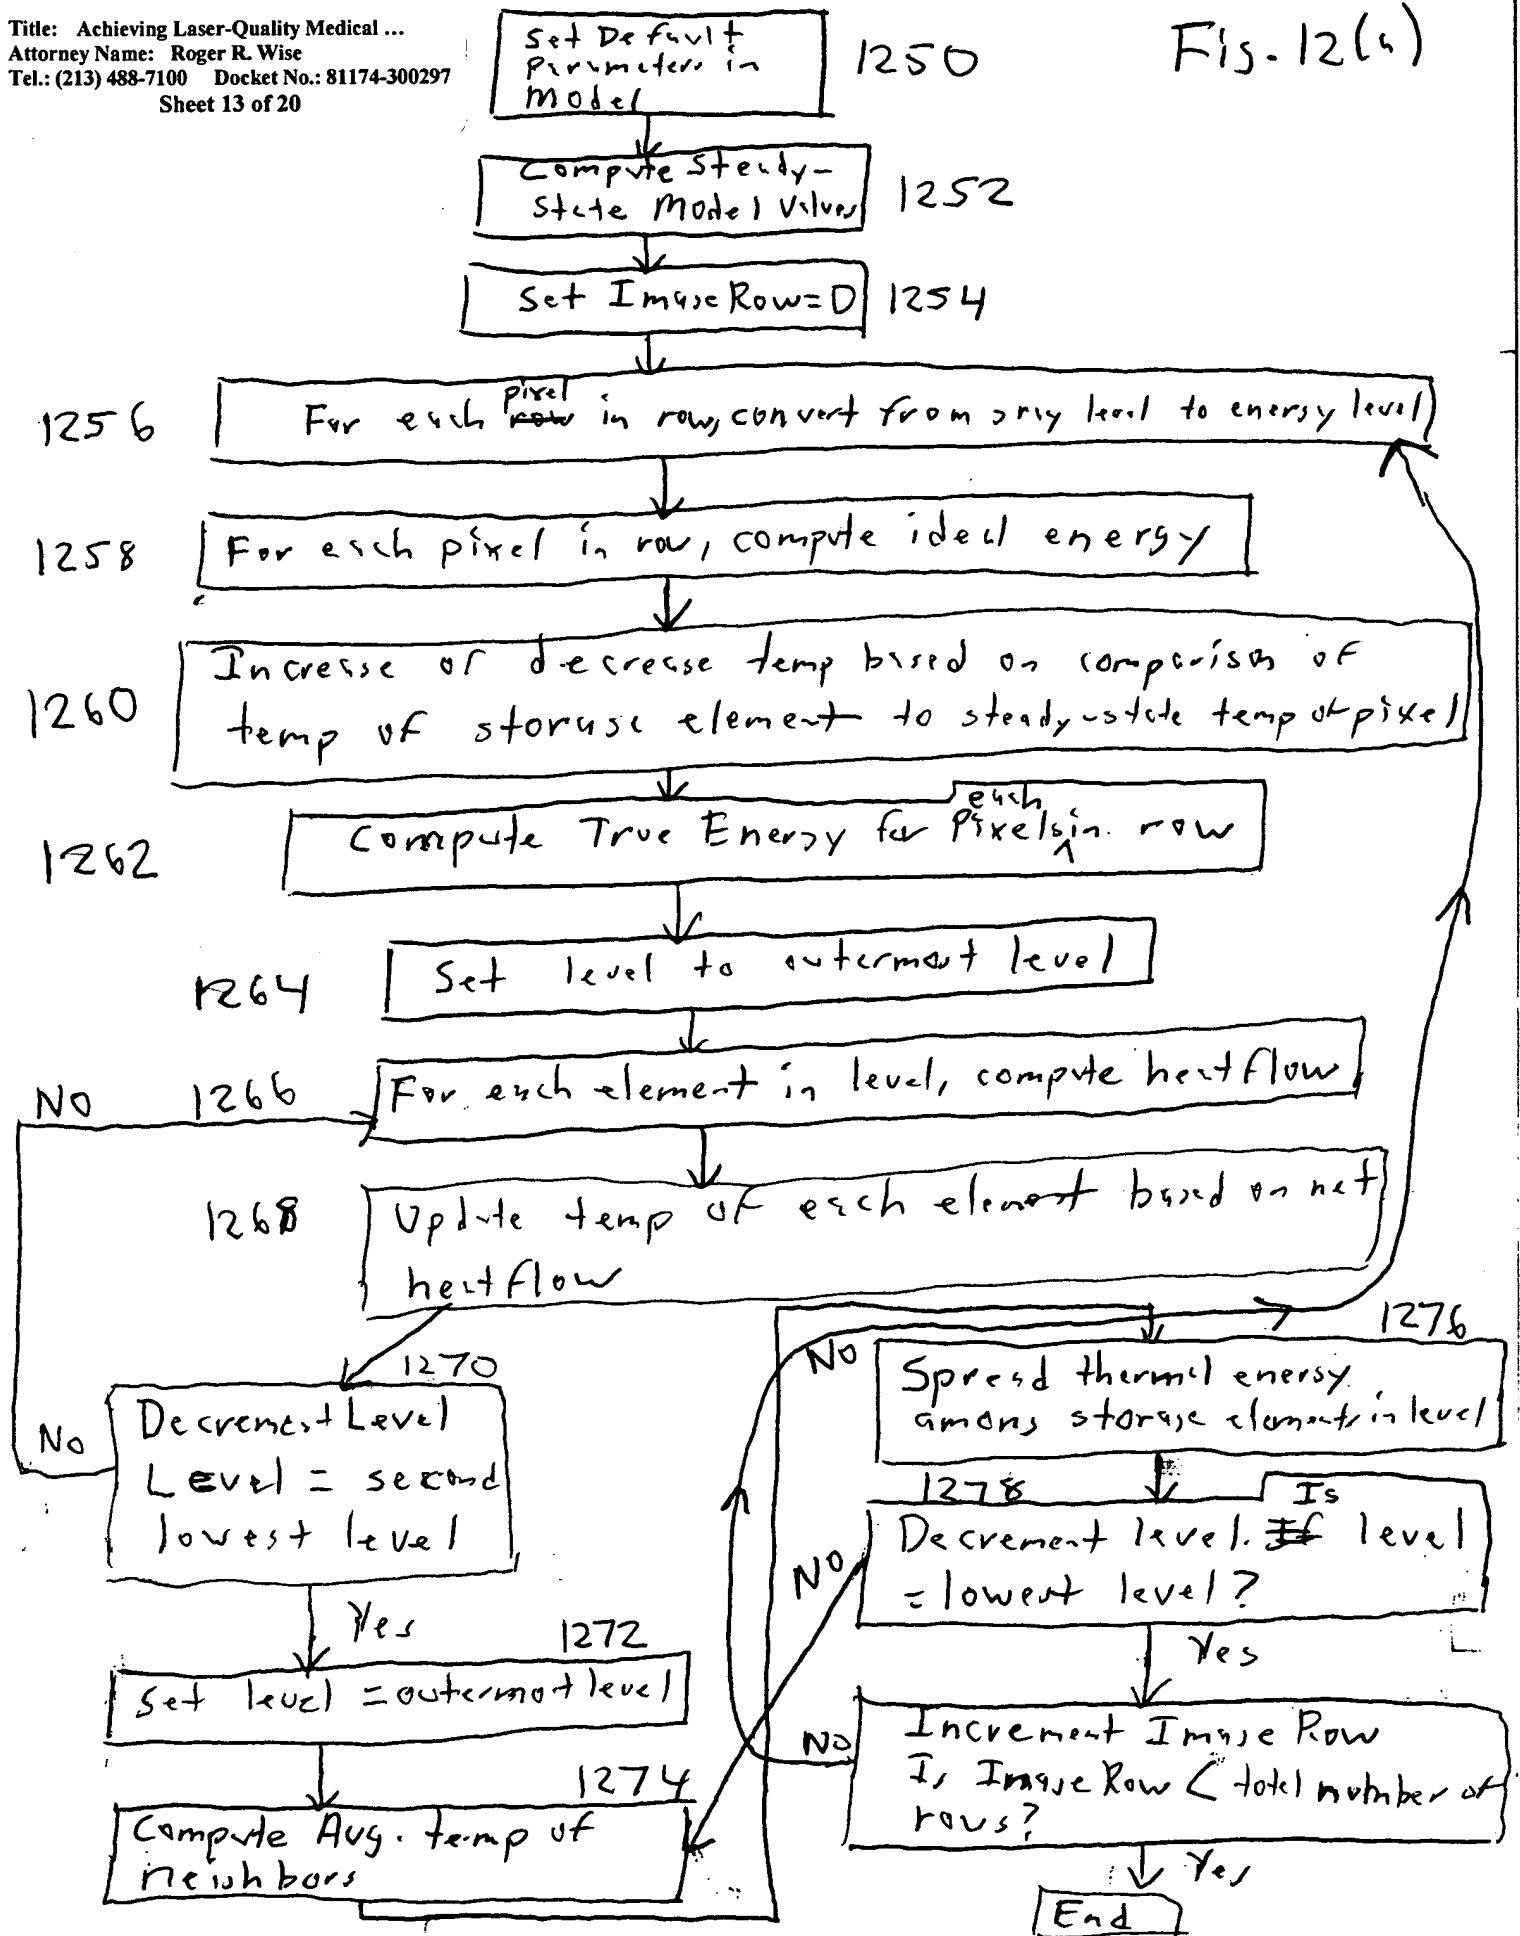 Title: Achieving Laser-Quality Medical ...
Attorney Name: Roger R. Wise
Tel.: (213) 488-7100 Docket No.: 81174-300297
Sheet 13 of 20
Fig. 12(a)
Set Default
Parameters in
Model
1250
Compute Steady-
State Model Values
1252
Set Image Row=0
1254
1256
pixel
For each row in row, convert from gray level to energy level
1258
For each pixel in row, compute ideal energy
1260
Increase or decrease temp based on comparison of
temp of storage element to steady-state temp of pixel
1262
each
Compute True Energy for Pixels in row
1264
Set level to outermost level
NO
1266
For each element in level, compute heat flow
1268
Update temp of each element based on net
heat flow
1270
No
Decrement Level
Level = second
lowest level
Yes
1272
Set level = outermost level
1274
Compute Avg. temp of
neighbors
1276
NO
Spread thermal energy
among storage elements in level
1278
Is
NO
Decrement level. If level
= lowest level?
Yes
NO
Increment Image Row
Is Image Row < total number of
rows?
Yes
End